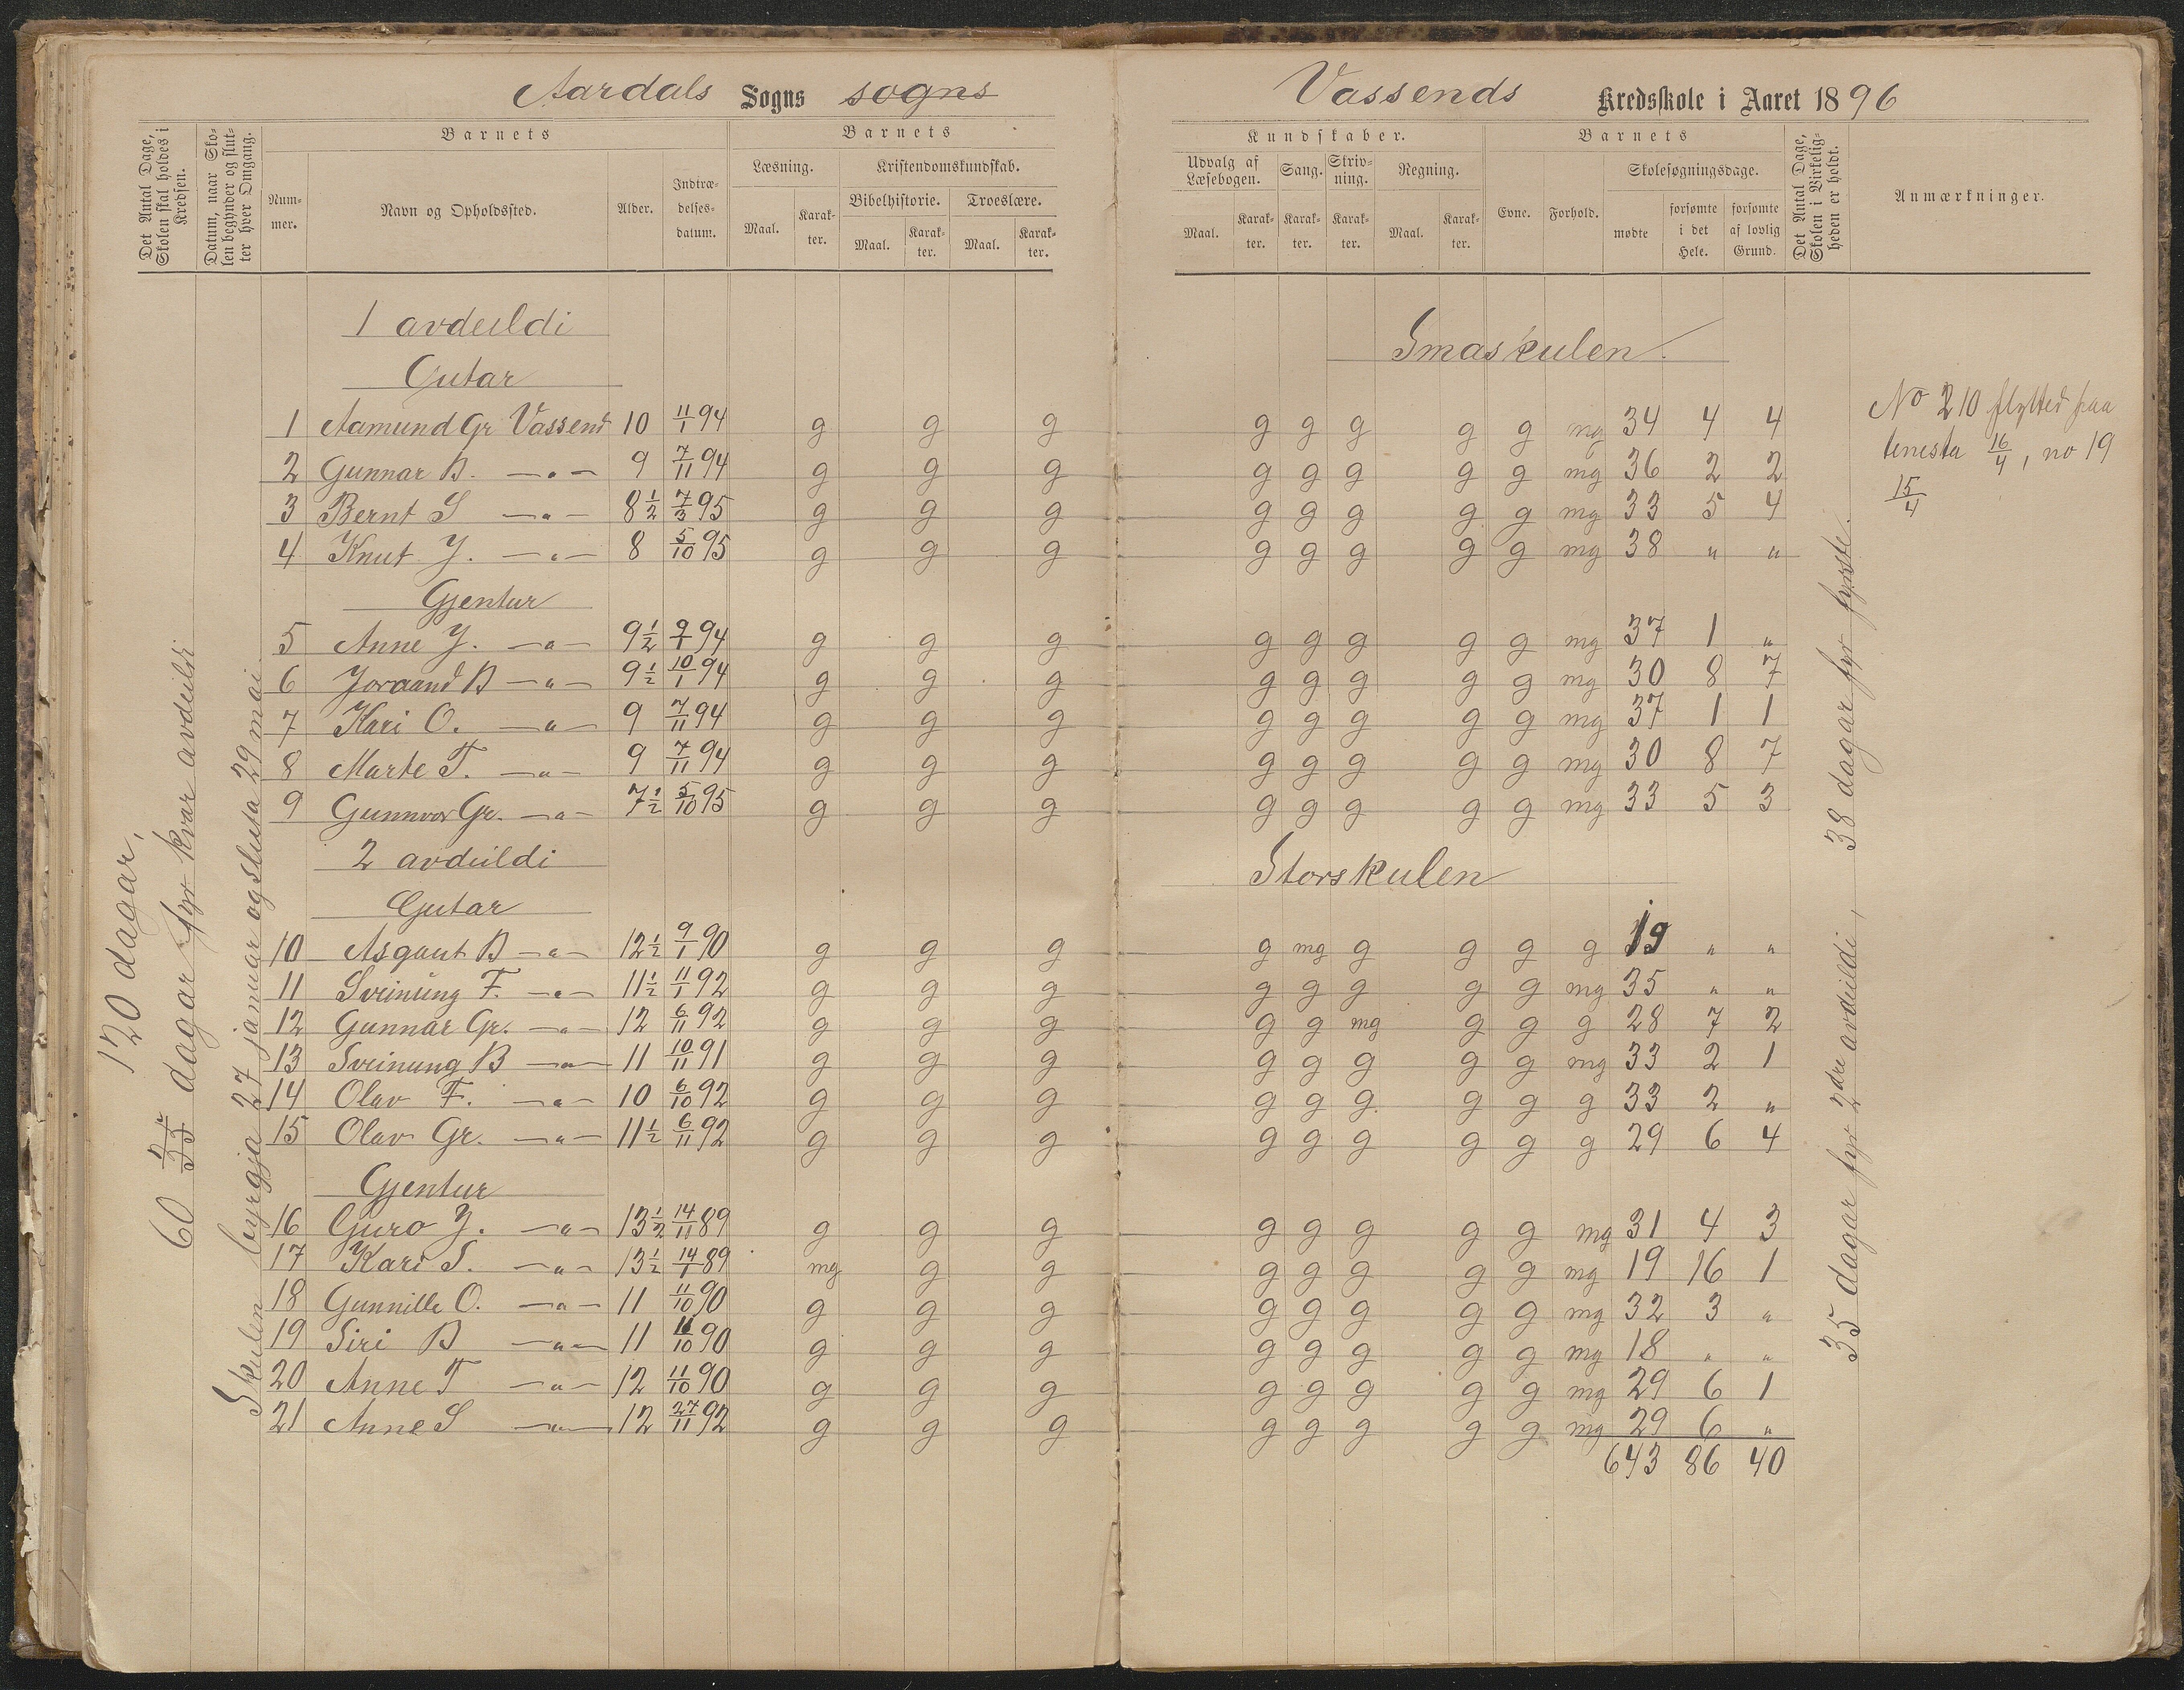 Aardals Sogns sogns
Vassends Kredsskole i Aaret 1896
Det Antal Dage, Skolen skal holdes i Kredsen.
Datum, naar Skolen begynder og slutter hver Omgang.
Barnets
Nummer.
Navn og Opholdssted.
Alder.
Indtrædelses-datum.
Barnets
Læsning.
Maal.
Karakter.
Kristendomskundskab.
Bibelhistorie.
Maal.
Karakter.
Troeslære.
Maal.
Karakter.
Kundskaber.
Udvalg af Læsebogen.
Maal.
Karakter.
Sang.
Karakter.
Skrivning.
Karakter.
Regning.
Maal.
Karakter.
Barnets
Evne.
Forhold.
Skolesøgningsdage.
mødte
forsømte i det Hele.
forsømte af lovlig Grund.
Det Antal Dage, Skolen i Virkeligheden er holdt.
Anmærkninger.
120 dagar.
60 35 dagar fyr kvar avdeildi
Skulen byrgja 27 januar og sluta 29 mai
1 avdeildi Smaskulen.
Gutar
1 Aamund Gr Vassend 10 11/1 94 g g g g g g g g mg 34 4 4
2 Gunnar B. —„— 9 7/11 94 g g g g g g g g mg 36 2 2
3 Bernt S —„— 8½ 7/3 95 g g g g g g g g mg 33 5 4
4 Knut J. —„— 8 5/10 95 g g g g g g g g mg 38 „ „
Gjentur
5 Anne J. —„— 9½ 9/1 94 g g g g g g g g mg 37 1 „
6 Joraand B —„— 9½ 10/1 94 g g g g g g g g mg 30 8 7
7 Kari O. —„— 9 7/11 94 g g g g g g g g mg 37 1 1
8 Marte T. —„— 9 7/11 94 g g g g g g g g mg 30 8 7
9 Gunnvor Gr. —„— 7½ 5/10 95 g g g g g g g g mg 33 5 3
2 avdeildi Storskulen
Gutar
10 Asgaut B —„— 12½ 9/1 90 g g g g mg g g g g 19 „ „
11 Sveinung F. —„— 11½ 11/1 92 g g g g g g g g mg 35 „ „
12 Gunnar Gr. —„— 12 6/11 92 g g g g g mg g g g 28 7 2
13 Sveinung B —„— 11 10/11 91 g g g g g g g g mg 33 2 1
14 Olav F. —„— 10 6/10 92 g g g g g g g g g 33 2 „
15 Olav Gr. —„— 11½ 6/11 92 g g g g g g g g g 29 6 4
Gjentur
16 Guro J. —„— 13½ 14/11 89 g g g g g g g g mg 31 4 3
17 Kari S. —„— 13½ 14/1 89 mg g g g g g g g mg 19 16 1
18 Gunnille O. —„— 11 11/10 90 g g g g g g g g mg 32 3 „
19 Siri B —„— 11 11/10 90 g g g g g g g g mg 18 „ „
20 Anne T —„— 12 11/10 90 g g g g g g g g mg 29 6 1
21 Anne S —„— 12 27/11 92 g g g g g g g g mg 29 6 „
643 86 40
35 dagar fyr 2dre avdeildi, 38 dagar fyr fyrste.
No 210 flytted paa
tenesta 16/4, no 19
15/4